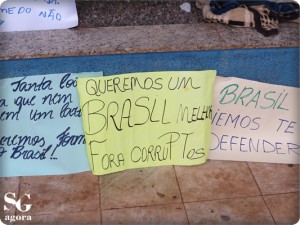 MEDO NÃO
Tanta
a que nem
em um
eremos
o Brasil!..
QUEREMOS UM
BRASIL MELHOR
FORA CORRUPTOS
BRASIL
VIEMOS TE
DEFENDER
SG
agora